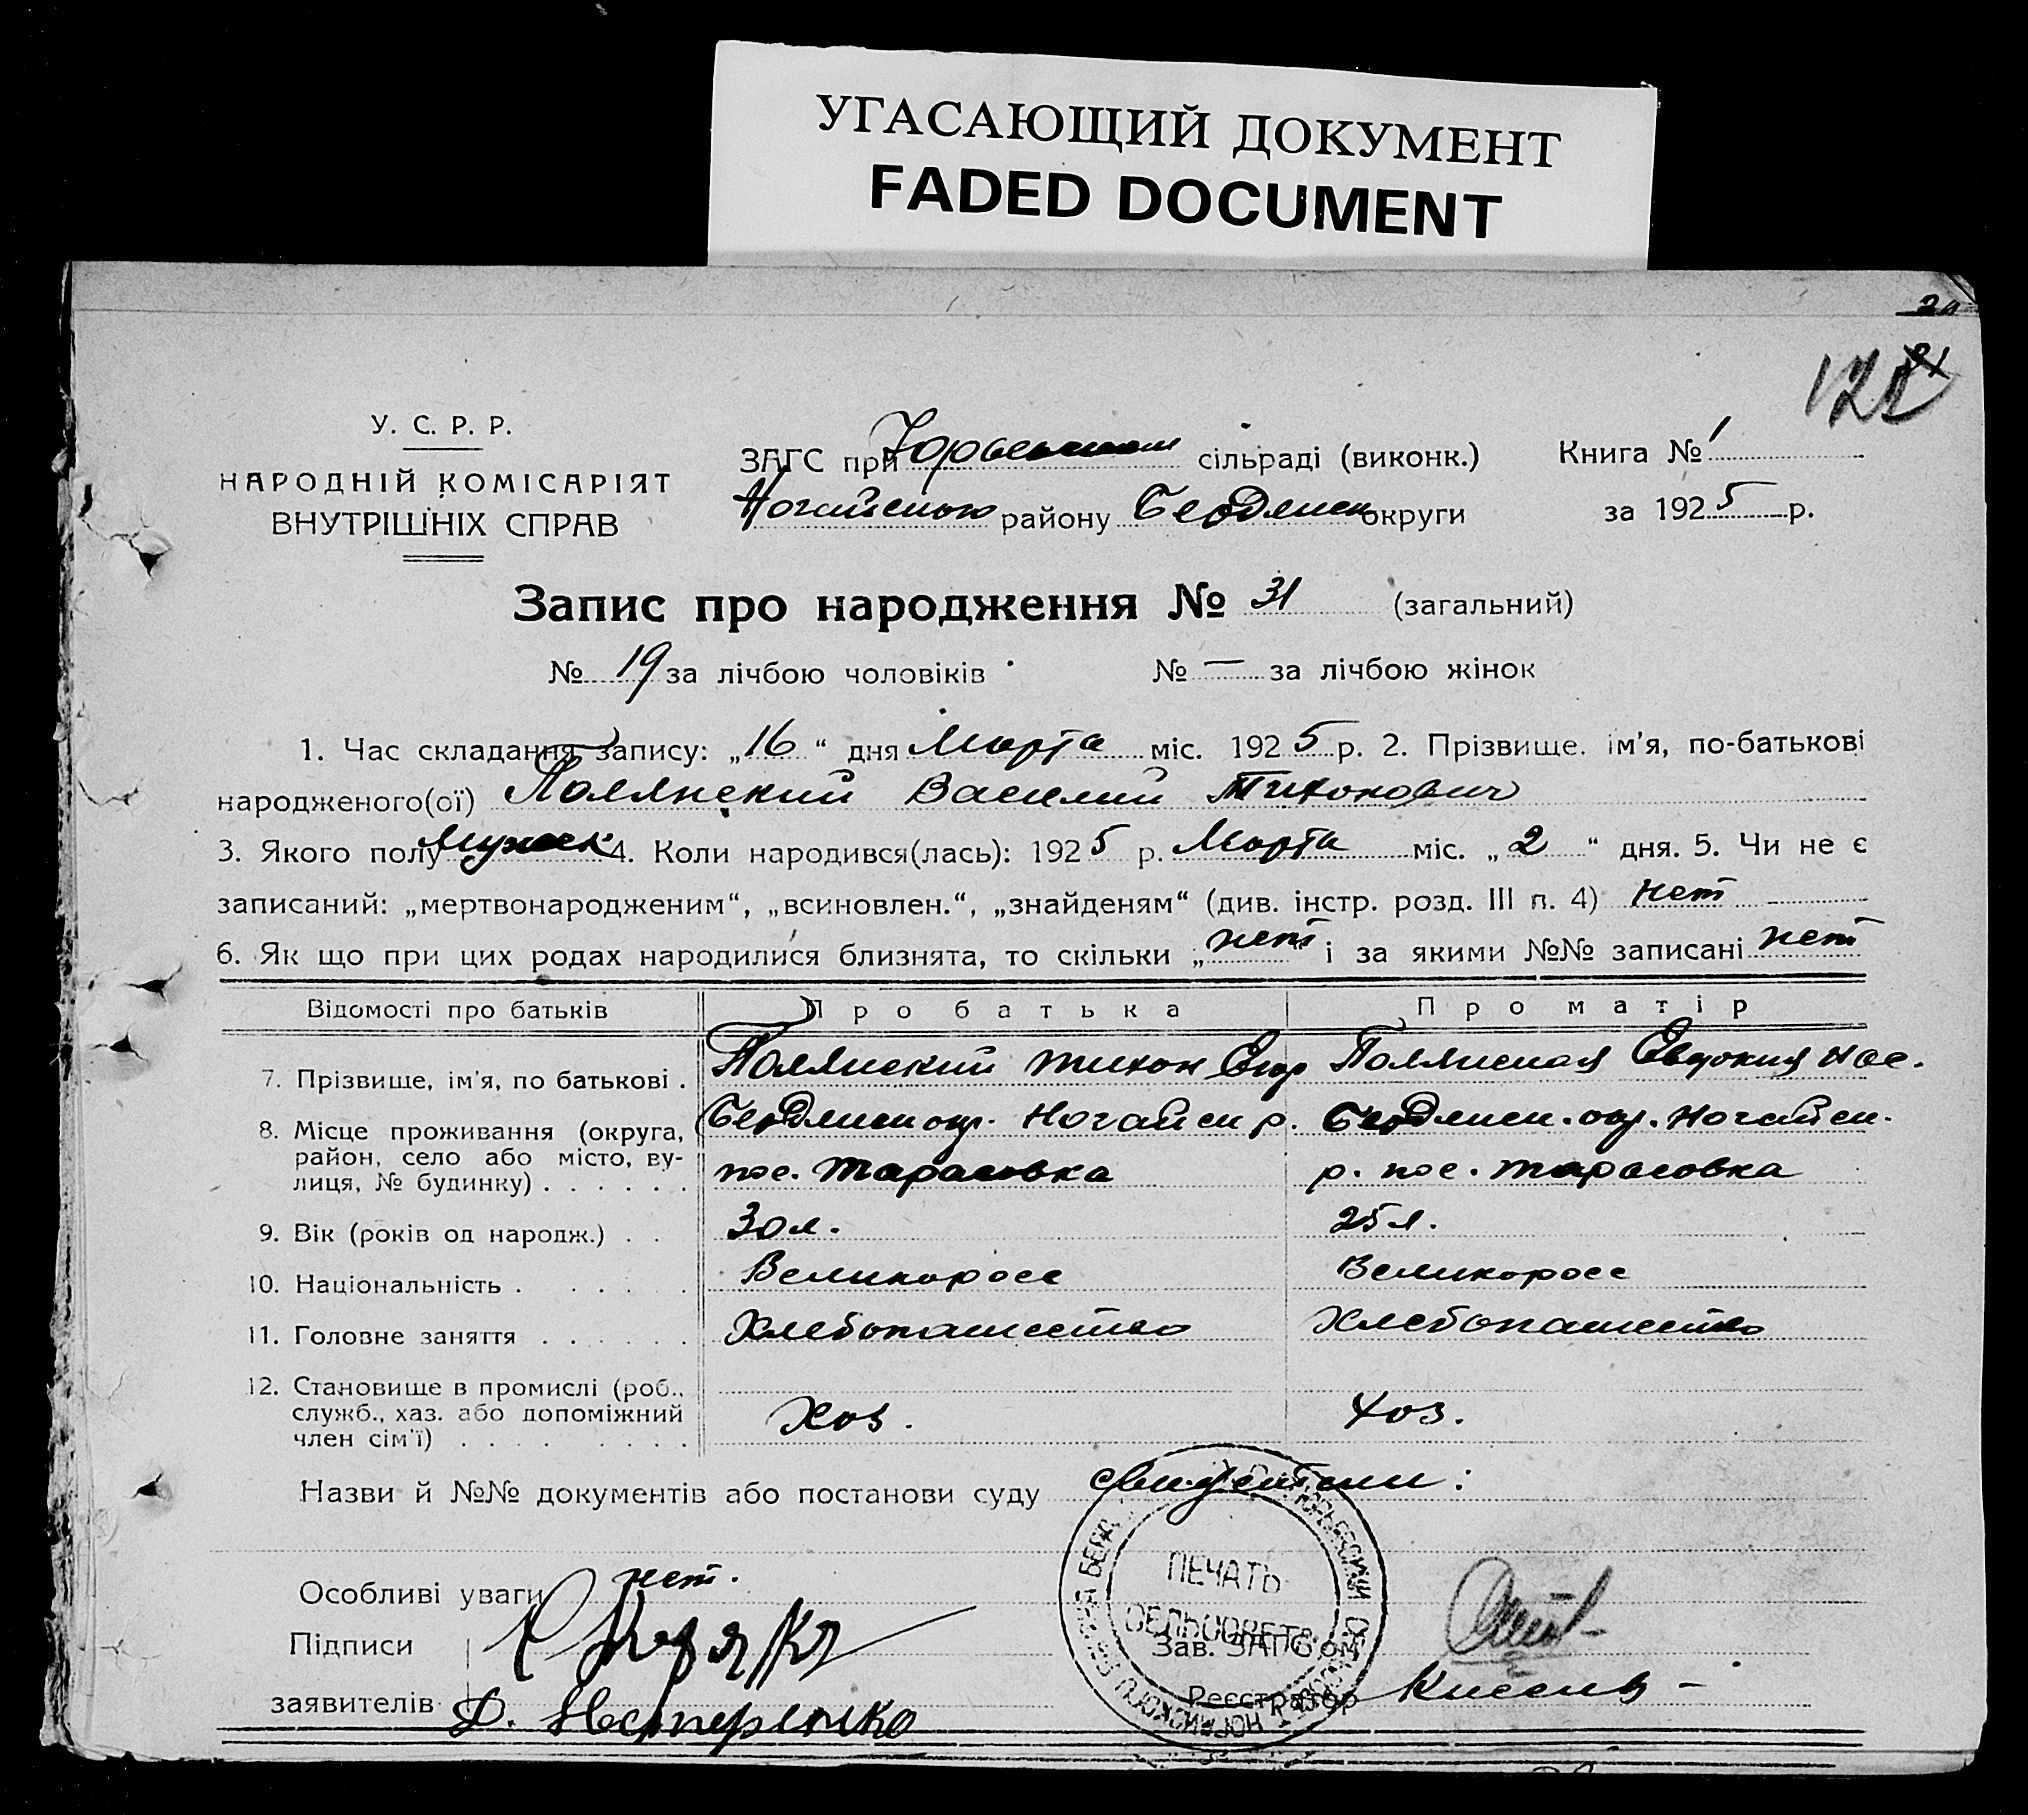 УГАСАЮЩИЙ ДОКУМЕНТ
FADED DOCUMENT
121
У. С. Р. Р.
НАРОДНІЙ КОМІСАРІЯТ
ВНУТРІШНІХ СПРАВ
ЗАГС при Юрьевском сільраді (виконк.) Книга № 1
Ногайского району Бердянск округи за 1925 р.
Запис про народження № 31 (загальний)
№ 19 за лічбою чоловіків № — за лічбою жінок
1. Час складання запису: „16“ дня Марта міс. 1925 р. 2. Прізвище. ім'я, по-батькові
народженого(ої) Полянский Василий Тихонович
3. Якого полу Мужск 4. Коли народився(лась): 1925 р. Марта міс. „2“ дня. 5. Чи не є
записаний: „мертвонародженим“, „всиновлен.“, „знайденям“ (див. інстр. розд. III п. 4) нет
6. Як що при цих родах народилися близнята, то скільки „нет“ і за якими №№ записані нет
Відомості про батьків Про батька Про матір
7. Прізвище, ім'я, по батькові . Полянский Тихон Егор Полянская Евдокия Нос.
8. Місце проживання (округа, Бердянск окр. Ногайск р. Бердянск. окр. Ногайск.
район, село або місто, ву-
лиця, № будинку) . . . . . . пос. Тарасовка р. пос. Тарасовка
9. Вік (років од народж.) . . 30 л. 25 л.
10. Національність . . . . . Великоросс Великоросс
11. Головне заняття . . . . . . Хлебопашество Хлебопашество
12. Становище в промислі (роб.,
служб., хаз. або допоміжний Хоз. Хоз.
член сім'ї) . . . . . . . .
Назви й №№ документів або постанови суду свидетели:
Особливі уваги нет.
ПЕЧАТЬ
СЕЛЬСОВЕТА
Підписи Зав. ЗАГС'ом
заявителів Д. Нестеренко Реєстратор